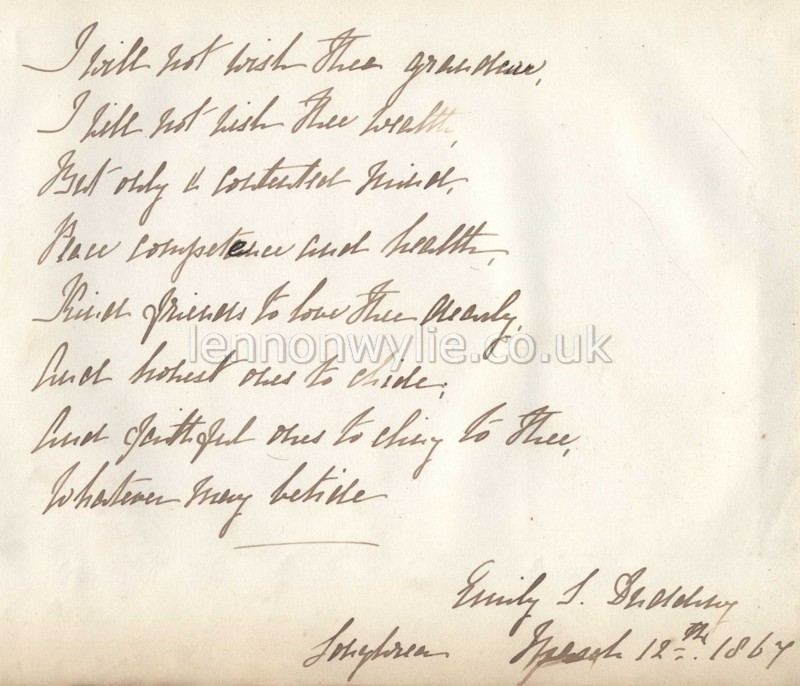 I will not wish thee grandeur,
I will not wish thee wealth,
But only a contented mind,
Peace competence and health,
Kind friends to love thee dearly,
lennonwylie.co.uk
And honest ones to chide;
And faithful ones to cling to thee,
Whatever may betide
Emily S.
March 12th. 1867